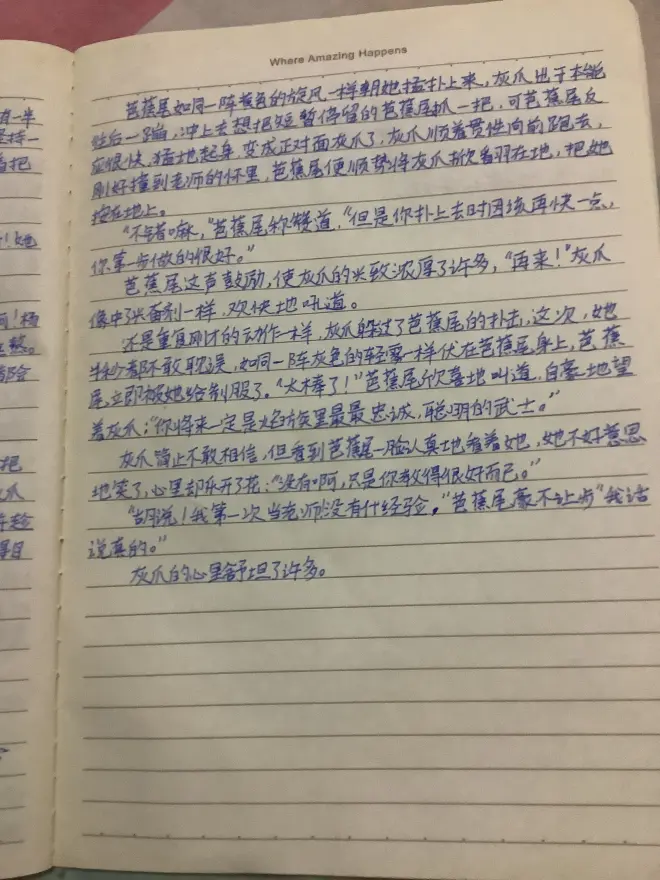 Where Amazing Happens
芭蕉尾如同一阵黄色的旋风一样朝她猛扑上来，灰爪出于本能
往后一蹦，冲上去想把短暂停留的芭蕉尾抓一把，可芭蕉尾反
应很快，猛地起身，变成正对面灰爪了，灰爪顺着惯性向前跑去，
刚好撞到老师的怀里，芭蕉尾便顺势将灰爪掀翻在地，把她
按在地上。
“不错嘛，”芭蕉尾称赞道，“但是你扑上去时因练再快一点，
你第一步做的很好。”
芭蕉尾这声鼓励，使灰爪的兴致浓厚了许多，“再来！”灰爪
像中了兴奋剂一样，欢快地吼道。
还是重复刚才的动作一样，灰爪躲过了芭蕉尾的扑击，这次，她
半秒都不敢耽误，如同一阵灰色的轻雾一样伏在芭蕉尾身上，芭蕉
尾立即被她给制服了。“太棒了！”芭蕉尾欣喜地叫道，自豪地望
着灰爪；“你将来一定是焰族里最最忠诚，聪明的武士。”
灰爪皆止不敢相信，但看到芭蕉尾一脸认真地看着她，她不好意思
地笑了，心里却乐开了花：“没有啊，只是你教得很好而已。”
“胡说！我第一次当老师没有什经验。”芭蕉尾毫不让步“我话
说真的。”
灰爪的心里舒坦了许多。
有一半
坚持一
着把
！她
同！杨
整。
都会
把
爪
目